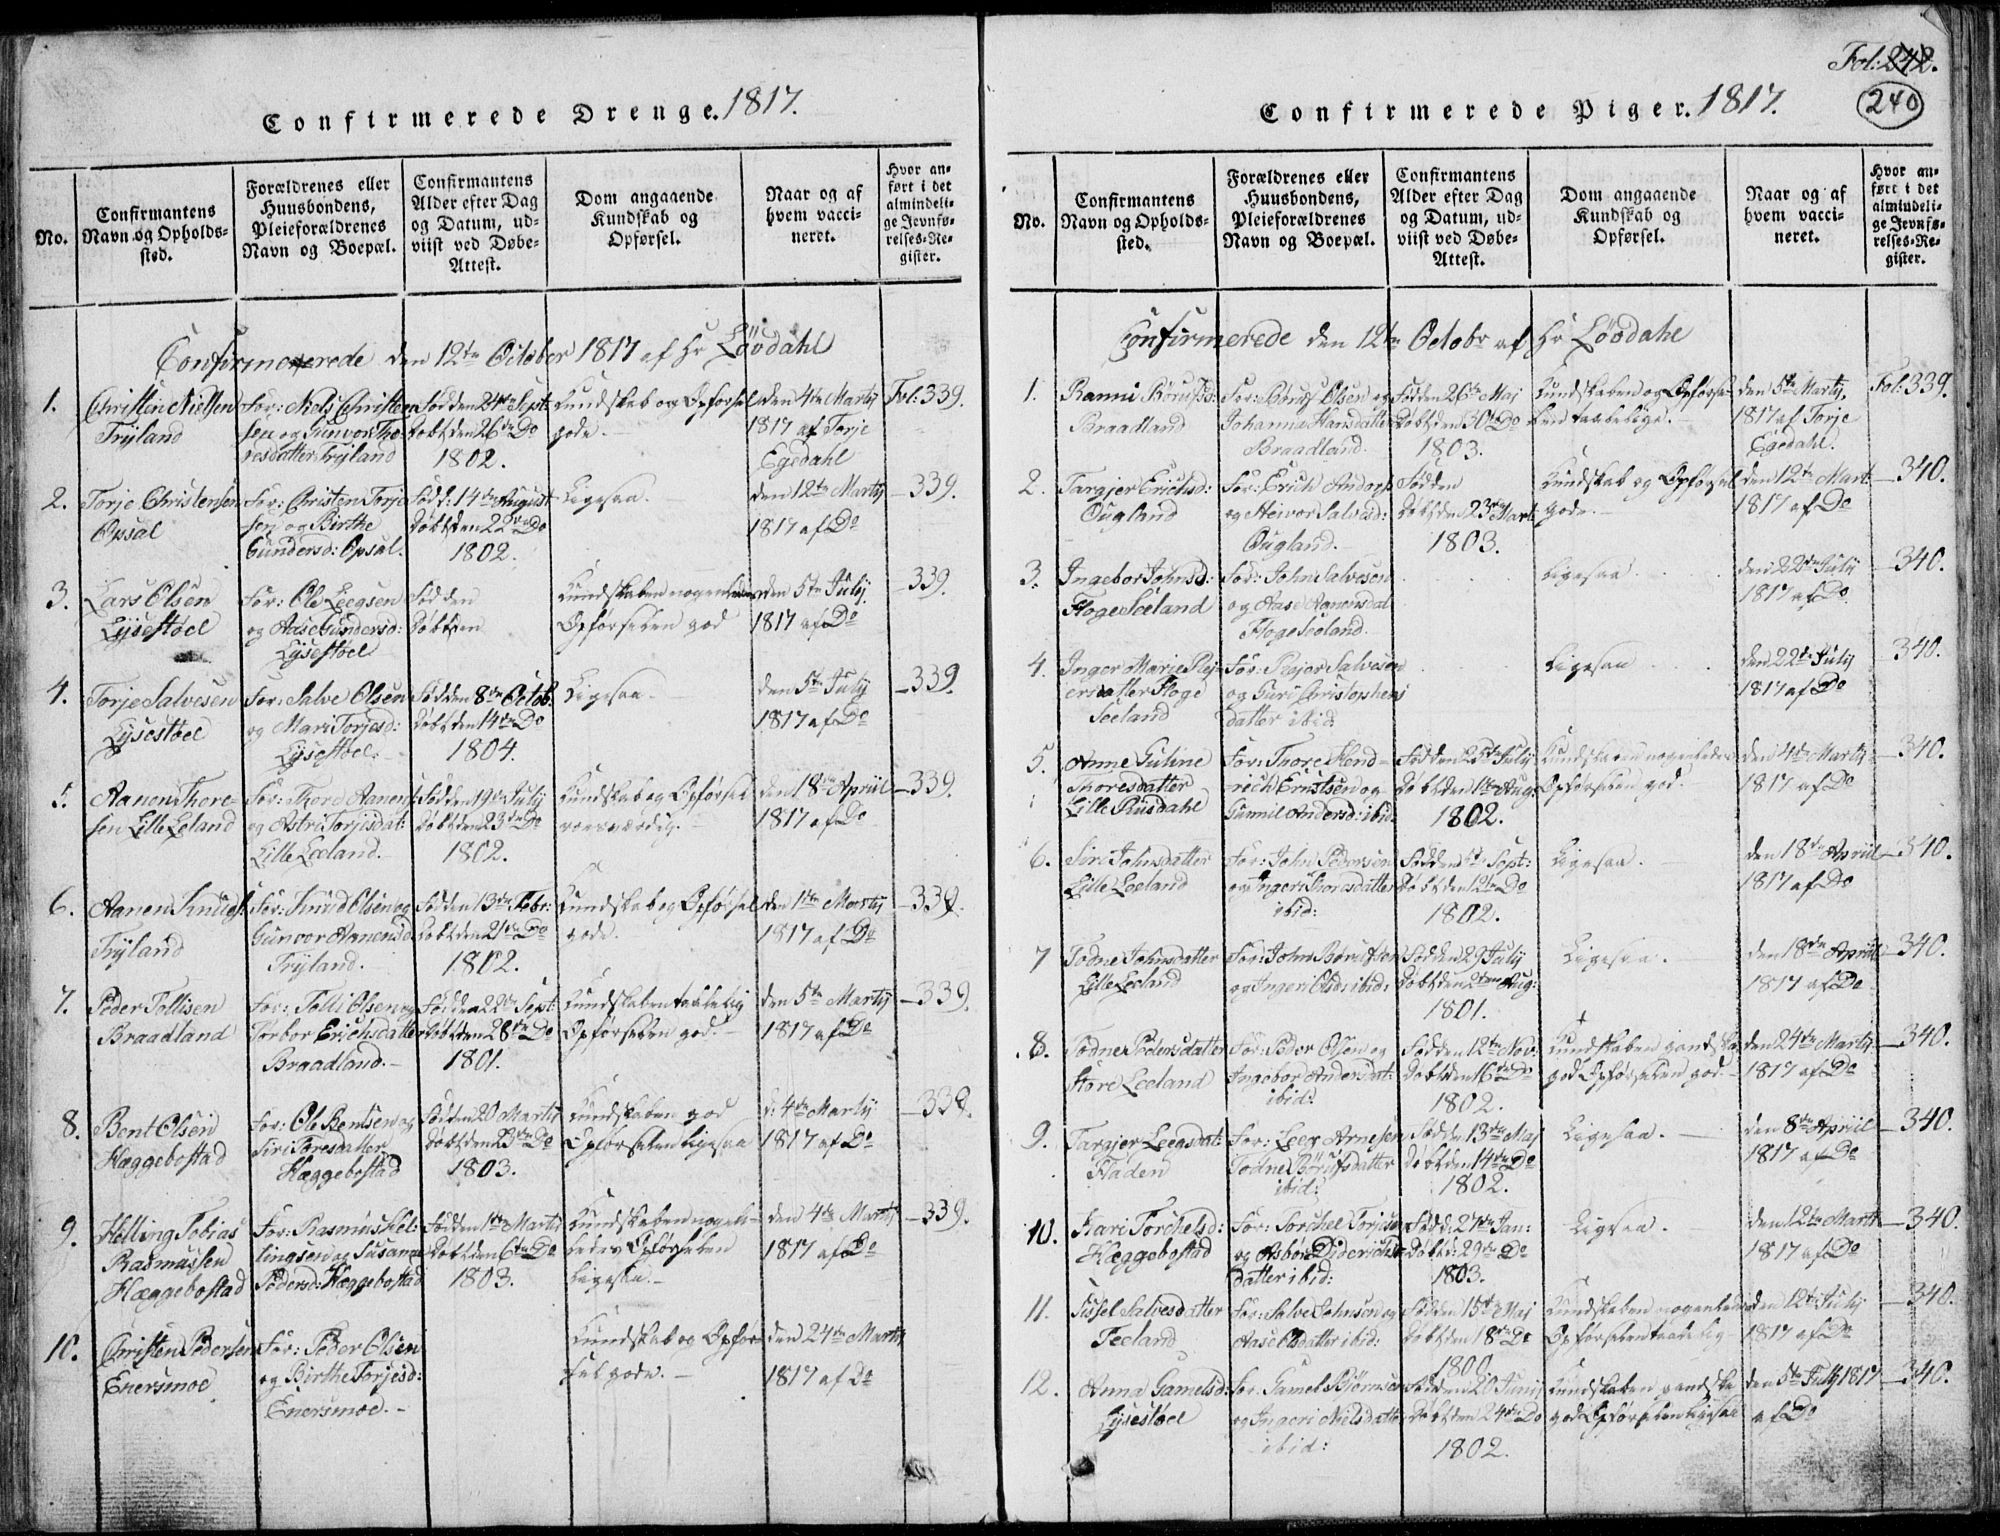 Fol: 242.
240
Confirmerede Drenge. 1817.
No.
Confirmantens
Navn og Opholds-
sted.
Forældrenes eller
Huusbondens,
Pleieforældrenes
Navn og Boepæl.
Confirmantens
Alder efter Dag
og Datum, ud-
viist ved Døbe-
Attest.
Dom angaaende
Kundskab og
Opførsel.
Naar og af
hvem vacci-
neret.
Hvor an-
ført i det
almindeli-
ge Jevnfø-
relses-Re-
gister.
Confirmerede den 12te October 1817 af Hr Løvdahl
1.
Christen Nielsen
Trÿland
For: Niels Christen
sen og Gunvor Tho-
resdatter Trÿland
Fød den 21de Sept:
Døbt den 26de Do
1802.
Kundskab og Opførsel
gode.
den 4de Martÿ
1817 af Torje
Egedahl
Fol: 339.
2.
Torje Christensen
Opsal
For: Christen Torje
sen og Birthe
Gundersd: Opsal.
Fød: 14de August
Døbt den 22de Do
1802.
Ligesaa.
den 12te Martÿ
1817 af Do
339.
3.
Lars Olsen
Lÿsestøel
For: Ole Leegsen
og Aase Gundersd:
Lÿsestøel
Fød den
Døbt den
Kundskaben nogenledes
Opførselen god
den 5te Julÿ
1817 af Do
339.
4.
Torje Salvesen
Lÿsestøel
For: Salve Olsen
og Mari Torjesd:
Lÿsestøel.
Fød den 8de Octob.
Døbt den 14de Do
1804.
Ligesaa.
den 5te Julÿ
1817 af Do
339.
5.
Aanen Thore-
sen Lille Leland
For: Thore Aanens:
og Astri Torjisdat:
Lille Leeland.
Fød den 19de Julÿ
Døbt den 23de Do
1802.
Kundskab og Opførsel
roesværdig.
den 18de Apriil
1817 af Do
339.
6.
Aanen Knuds:
Trÿland
For: Knud Olsen og
Gunvor Aanensd
Trÿland.
Fød den 13de Febr:
Døbt den 21de Do
1802.
Kundskab og Opførsel
gode.
den 1te Martÿ
1817 af Do
339.
7.
Peder Tollisen
Braadland
For: Tolli Olsen og
Torbor Erichsdatter
Braadland.
Fød den 22de Sept
Døbt den 28de Do
1801.
Kundskaben taalelig
Opførselen god.
den 5te Martÿ
1817 af Do
339.
8.
Bent Olsen
Hæggebostad
For: Ole Bentsen og
Siri Toresdatter
Hæggebostad
Fød den 20 Martii
Døbt den 23de Do
1803.
Kundskaben god
Opførselen ligesaa
d: 4de Martÿ
1817 af Do
339.
9.
Helling Tobias
Rasmussen
Hæggebostad
For: Rasmus Hel-
lingsen og Susanna
Pedersd: Hæggebostad
Fød den 1te Martii
Døbt den 6te Do
1803.
Kundskaben nogen-
ledes Opførselen
ligesaa.
den 4de Martÿ
1817 af Do
339.
10.
Christen Pedersen
Enersmoe
For: Peder Olsen
og Birthe Torjisd:
Enersmoe.
Kundskab og Opfør-
sel gode.
den 24de Martÿ
1817 af Do
Confirmerede Piger. 1817.
No.
Confirmantens
Navn og Opholds-
sted.
Forældrenes eller
Huusbondens,
Pleieforældrenes
Navn og Boepæl.
Confirmantens
Alder efter Dag
og Datum, ud-
viist ved Døbe-
Attest.
Dom angaaende
Kundskab og
Opførsel.
Naar og af
hvem vacci-
neret.
Hvor an-
ført i det
almindeli-
ge Jevnfø-
relses-Re-
gister.
Confirmerede den 12te Octobr af Hr Løvdahl
1.
Ranni Børufsd:
Braadland
For: Børuf Olsen og
Johanna Hansdatter
Braadland.
Fød den 26de Maj
Døbt den 30te Do
1803.
Kundskaben og Opførse-
len taalelige.
den 5te Martÿ
1817 af Torje
Egedahl.
Fol: 339.
2.
Targjer Erichsd:
Ougland
For: Erich Anders
og Heivor Salvesd:
Ougland.
Fød den
Døbt den 23de Marti
1803.
Kundskab og Opførsel
gode.
den 12te Mart:
1817 af Do
340.
3.
Ingebor Johnsd:
Hoge Seeland
For: John Salvesen
og Aase Aanensdat
Hoge Seeland.
Ligesaa
den 22de Julÿ
1817 af Do
340.
4.
Inger Marje Rej-
ersdatter Hoge
Seeland
For: Rejer Salvesen
og Guri Christophers
datter ibid
Ligesaa
den 22de Julÿ
1817 af Do
340.
5.
Anne Guline
Thoresdatter
Lille Rusdahl
For: Thore Hend-
rich Erntsen og
Gunnil Andersd: ibid
Fød den 25de Julÿ
Døbt den 1te Aug:
1802.
Kundskaben nogenledes
Opførselen god.
den 4de Martÿ
1817 af Do
340.
6.
Siri Johnsdatter
Lille Leeland
For: John Pedersen
og Ingeri Thoresdatter
ibid:
Fød den Sept:
Døbt den 12te Do
1802.
Ligesaa.
den 18de Apriil
1817 af Do
340.
7
Todne Johnsdatter
Lille Leeland
For: John Børufsen
og Ingeri Olsd: ibid:
Fød den 29 Julÿ
Døbt den 2den Aug:
1801.
Ligesaa.
den 18de Apriil
1817 af Do
340.
8.
Todne Pedersdatter
Store Leeland
For: Peder Olsen og
Ingebor Andersdat:
ibid:
Fød den 12te Nov:
Døbt den 16de Do
1802.
Kundskaben gandske
god Opførselen god.
den 24de Martÿ
1817 af Do
340.
9.
Targjer Leegsdat:
Staden
For: Leeg Arnesen
Todne Børufsdatter
ibid:
Fød den 13de Maj
Døbt den 14de Do
1802.
Ligesaa.
den 8de Apriil
1817 af Do
340.
10.
Kari Torchelsd:
Hæggebostad
For: Torchel Torjisen
og Asbor Diderichs-
datter ibid:
Fød d: 27de Jan:
Døbt d: 29de Do
1803.
Ligesaa.
den 12te Marti
1817 af Do
340.
11.
Sissel Salvesdatter
Teeland
For: Salve Johnsen og
Aase Olsdatter ibid:
Fød den 15de Maj
Døbt den 18de Do
1800.
Kundskaben nogenledes
Opførselen taalelig
den 12te Julÿ
1817 af Do
340.
12.
Anna Gamelsd:
Lÿsestøel
For: Gamel Bjørnsen
og Ingeri Nilsdatter
ibid:
Fød den 20 Junÿ
Døbt den 24de Do
1802.
Kundskaben gandske
god Opførselen ligesaa
den 5te Julÿ 1817
af Do
340.